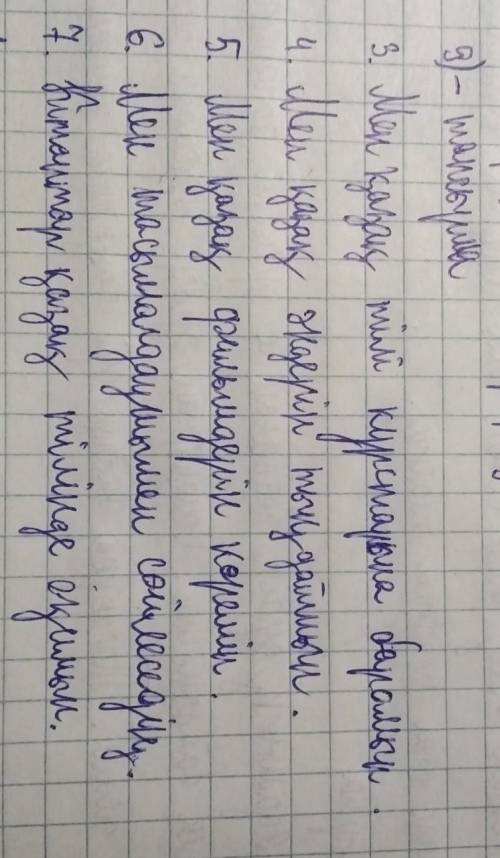 3. Мен қазақ тілі курстарына барамын.
4. Мен қазақ әндерін тыңдаймын.
5. Мен қазақ фильмдерін көремін.
6. Мен тасымалдаушымен сөйлеседім.
7. Кітаптар қазақ тілінде оқимын.